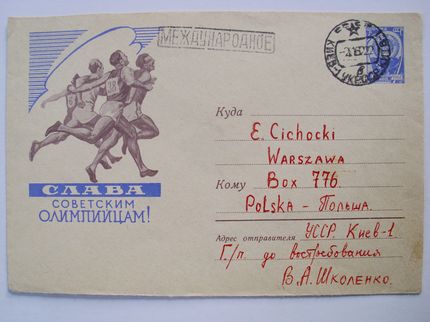 МЕЖДУНАРОДНОЕ
Куда
E. Cichocki
WARSZAWA
Кому Box 776.
PoLSKA - Польша.
Адрес отправителя УССР Киев-1
Г/п до востребования
В.А. Школенко.
СЛАВА
СОВЕТСКИМ
ОЛИМПИЙЦАМ!